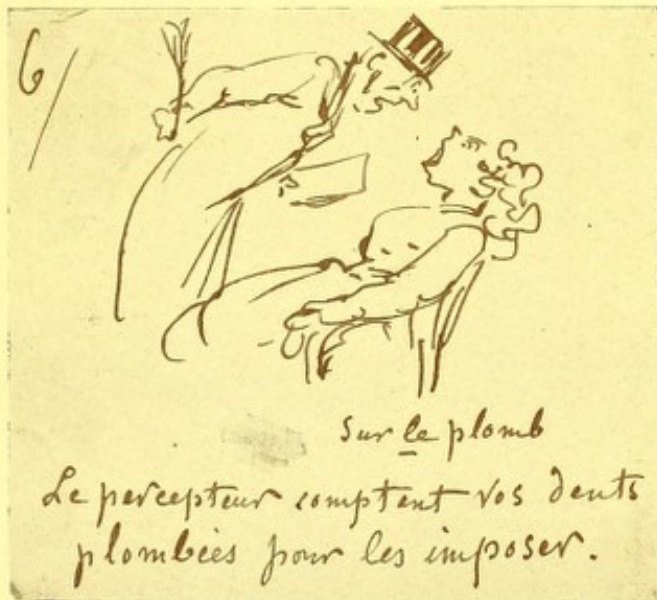 6/
sur le plomb
Le percepteur comptant vos dents
plombées pour les imposer.